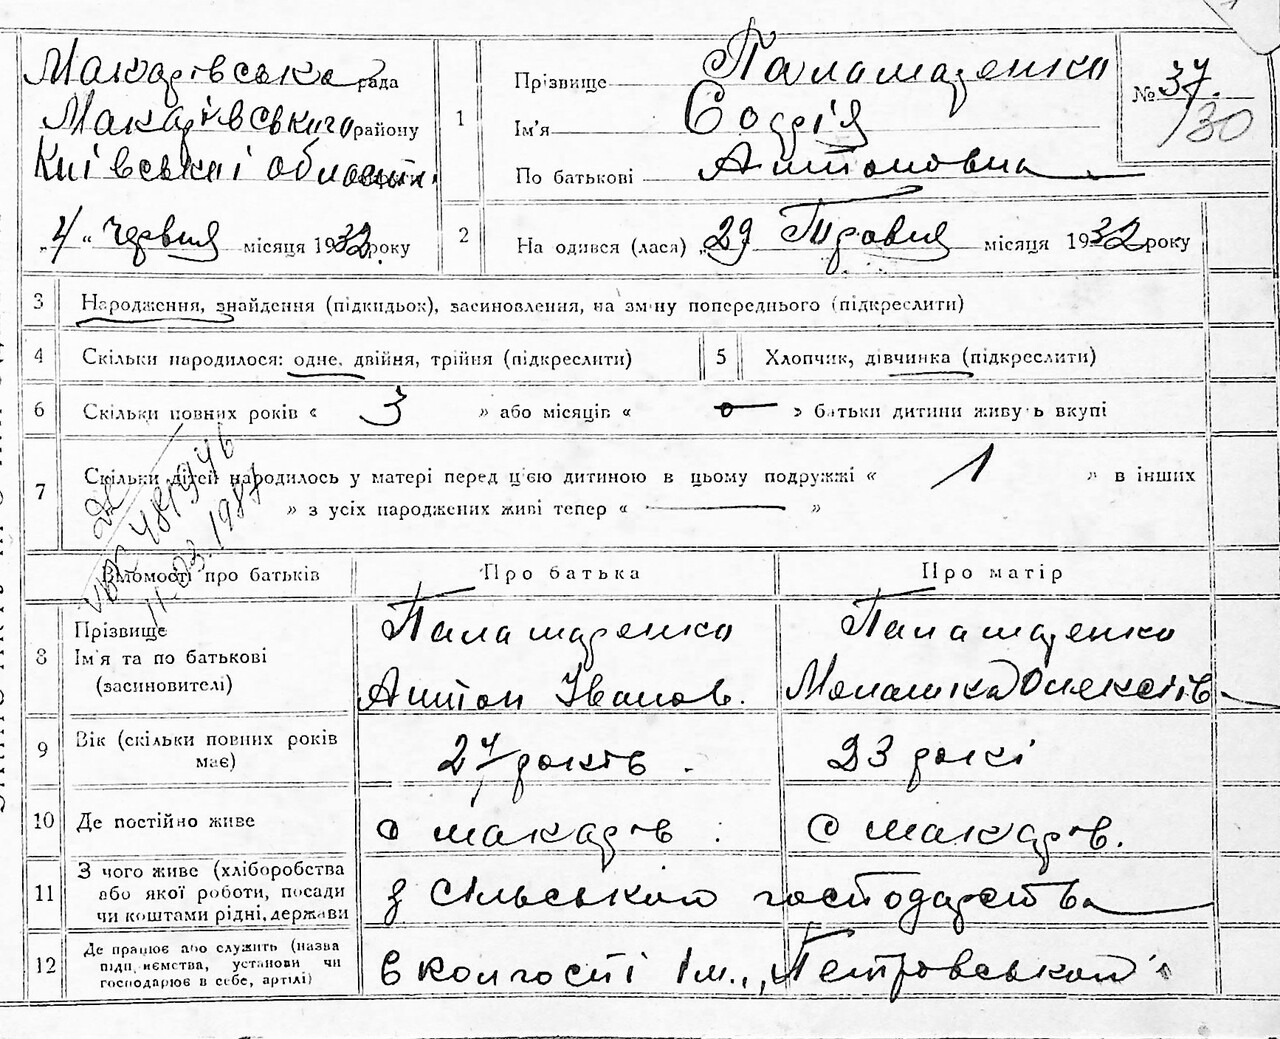 Макарівська рада
Макарівського району
Київської області.
„4“ червня місяця 1932 року
1
Прізвище Паламаренко
Ім'я Софія
По батькові Антоновна
№ 37.
/30
2
На одився (лася) „29 Травня місяця 1932 року
3 Народження, знайдення (підкидьок), засиновлення, на зміну попереднього (підкреслити)
4 Скільки народилося: одне, двійня, трійня (підкреслити)
5 Хлопчик, дівчинка (підкреслити)
6 Скільки повних років « 3 » або місяців « 0 » батьки дитини живуть вкупі
7 Скільки дітей народилось у матері перед цією дитиною в цьому подружжі « 1 » в інших
» з усіх народжених живі тепер « — »
11.03.1987
Відомості про батьків Про батька Про матір
8 Прізвище
Ім'я та по батькові
(засиновителі)
Паламаренко
Антон Іванов.
Паламаренко
Малашка Олексіїв
9 Вік (скільки повних років
має)
27 років.
23 рокі
10 Де постійно живе с макарів. с макарів.
11 З чого живе (хліборобства
або якої роботи, посади
чи коштами рідні, держави
з сільського господарства
12 Де працює або служить (назва
підприємства, установи чи
господарює в себе, артілі)
в колгоспі ім. „Петровського"